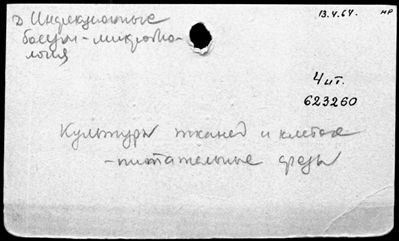 Д Инфекционные
болезни - микробио-
логия
13.4.64. НР
4 шт.
623260
Культуры тканей и клеток
- питательные среды